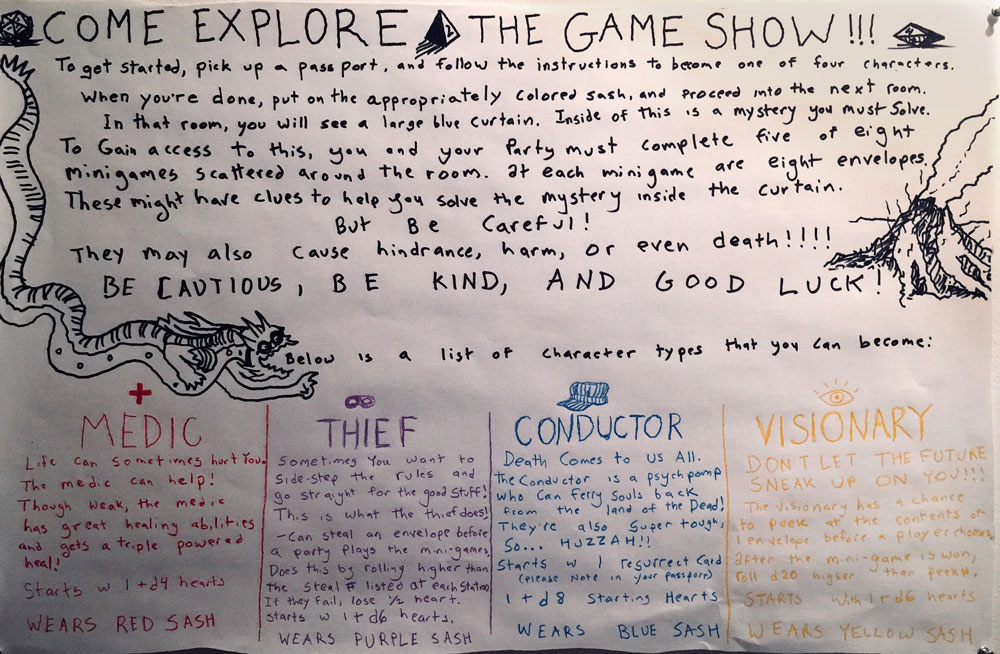 COME EXPLORE THE GAME SHOW!!!
To get started, pick up a passport, and follow the instructions to become one of four characters.
When you're done, put on the appropriately colored sash, and proceed into the next room.
In that room, you will see a large blue curtain. Inside of this is a mystery you must solve.
To Gain access to this, you and your Party must complete five of eight
minigames scattered around the room. at each minigame are eight envelopes.
These might have clues to help you solve the mystery inside the curtain.
But Be Careful!
They may also cause hindrance, harm, or even death!!!!
BE CAUTIOUS, BE KIND, AND GOOD LUCK!
Below is a list of character types that you can become:
MEDIC
Life can sometimes hurt You.
The medic can help!
Though weak, the medic
has great healing abilities
and gets a triple powered
heal!
Starts w 1+d4 hearts
WEARS RED SASH
THIEF
Sometimes You want to
Side-step the rules and
go straight for the good stuff!
This is what the thief does!
-Can steal an envelope before
a party plays the mini-games,
Does this by rolling higher than
the steal # listed at each station
If they fail, lose 1/2 heart.
starts w 1+d6 hearts.
WEARS PURPLE SASH
CONDUCTOR
Death Comes to us All.
The Conductor is a psychpomp
who can ferry souls back
from the land of the Dead!
They're also super tough,
So... HUZZAH!!
Starts w 1 resurrect Card
(please note in your passport)
1+d8 Starting Hearts
WEARS BLUE SASH
VISIONARY
DON'T LET THE FUTURE
SNEAK UP ON YOU!!!
The visionary has a chance
to peek at the contents of
1 envelope before a player chooses.
after the mini-game is won,
roll d20 higher than peek#.
STARTS with 1+d6 hearts
WEARS YELLOW SASH